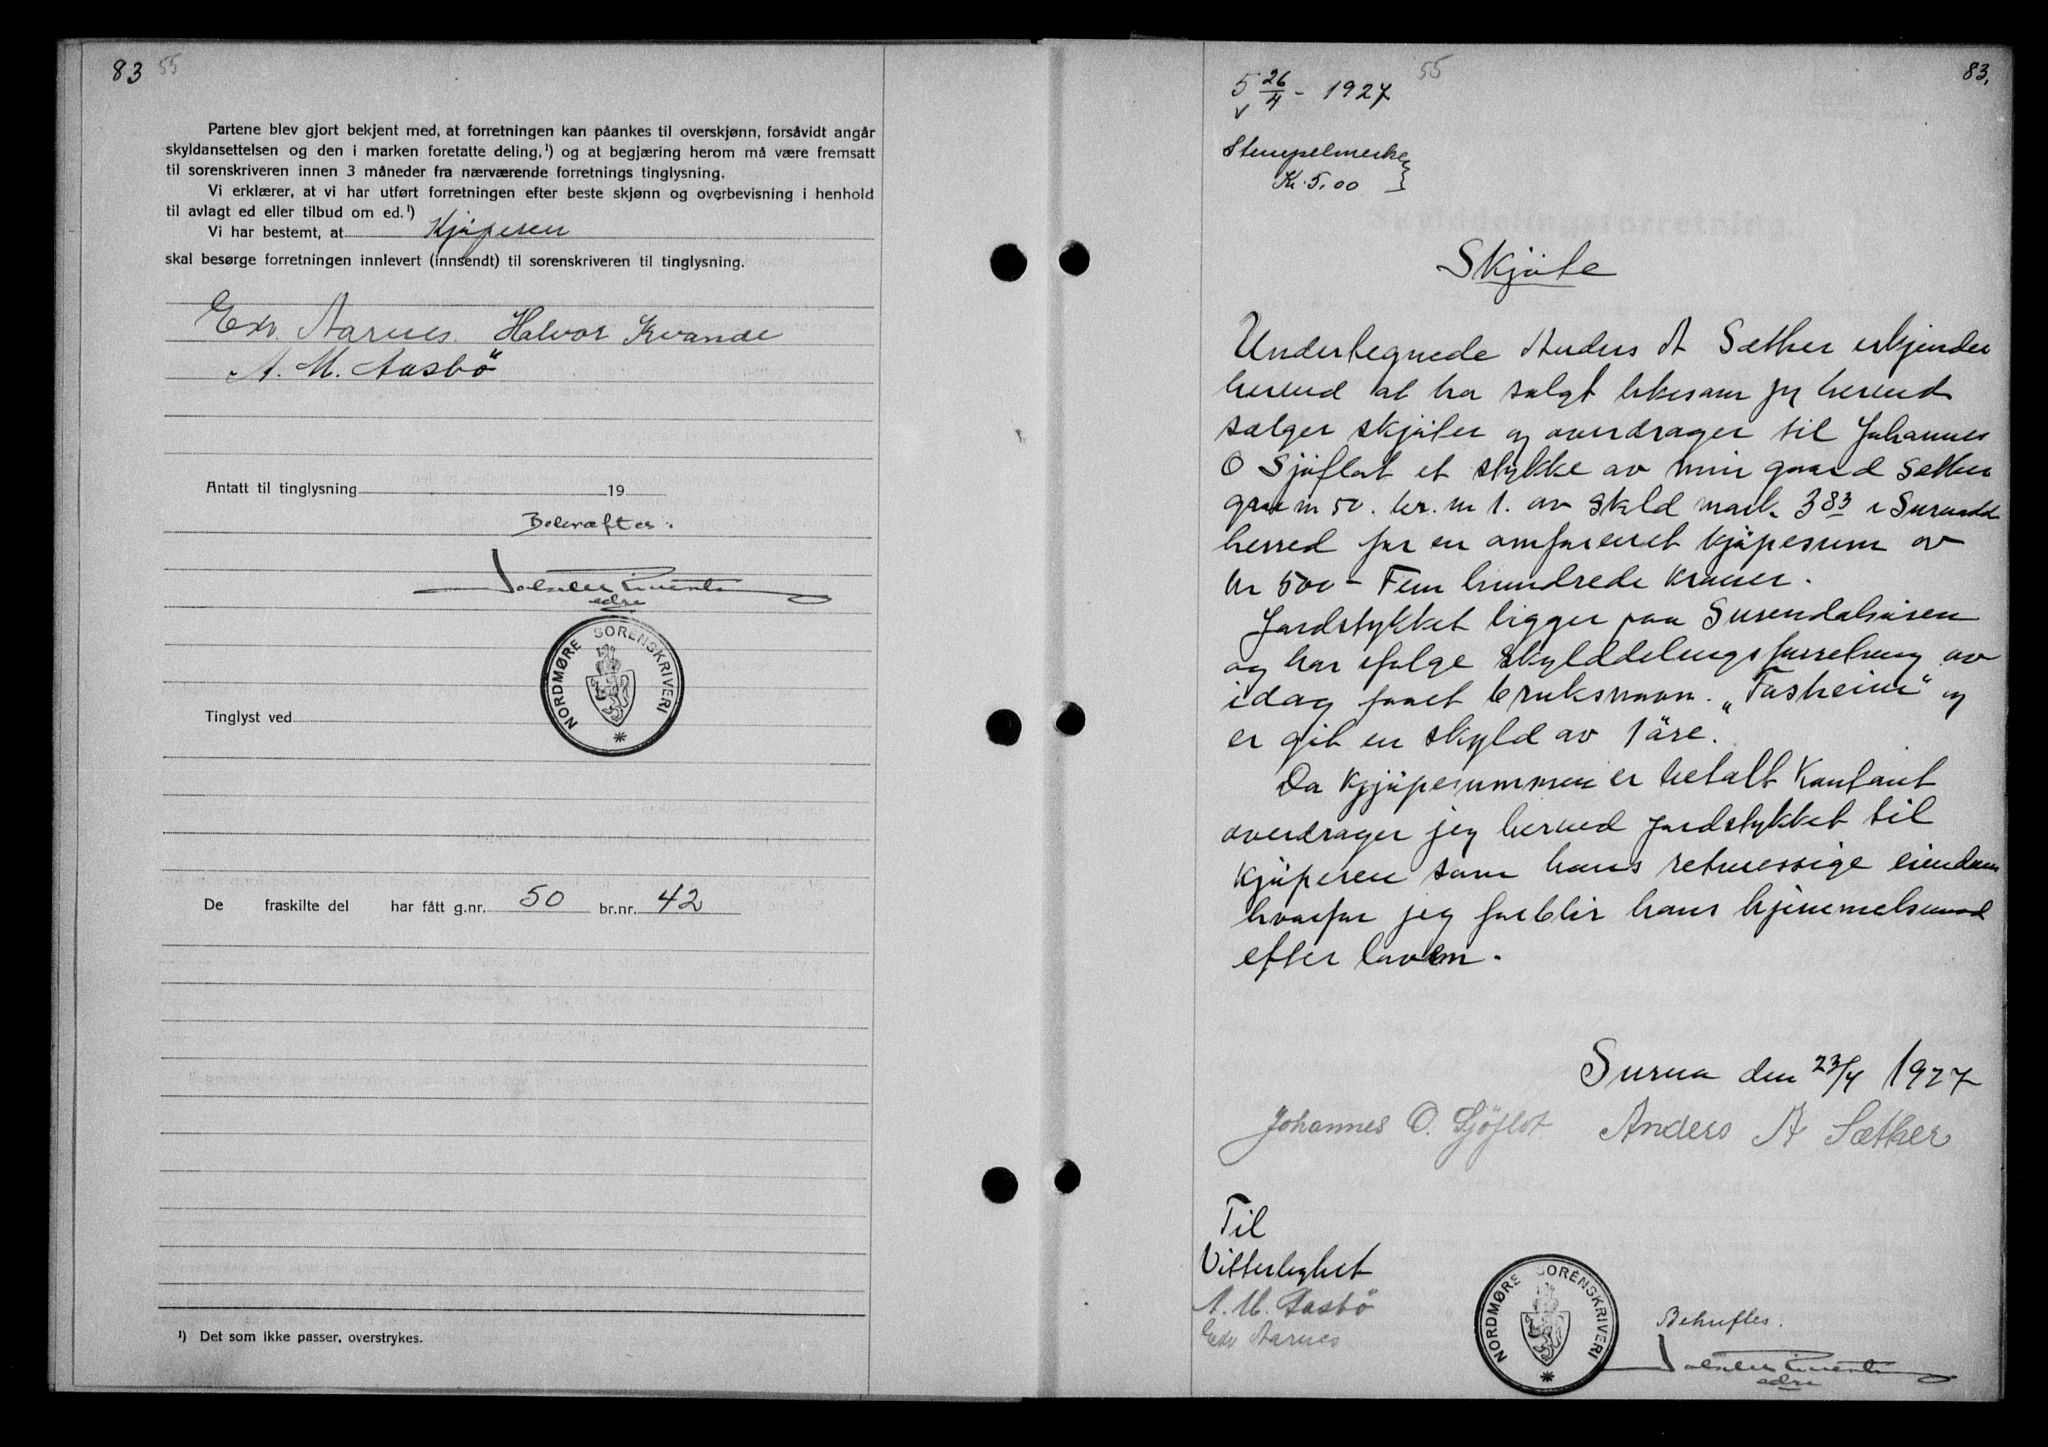 83 55
Partene blev gjort bekjent med, at forretningen kan påankes til overskjønn, forsåvidt angår
skyldansettelsen og den i marken foretatte deling,¹) og at begjæring herom må være fremsatt
til sorenskriveren innen 3 måneder fra nærværende forretnings tinglysning.
Vi erklærer, at vi har utført forretningen efter beste skjønn og overbevisning i henhold
til avlagt ed eller tilbud om ed.¹)
Vi har bestemt, at Kjöperen
skal besørge forretningen innlevert (innsendt) til sorenskriveren til tinglysning.
Edv. Aarnes. Halvor Kvande
A. M. Aasbö
Antatt til tinglysning 19
Bekræftes.
edre
NORDMØRE SORENSKRIVERI
Tinglyst ved
De fraskilte del har fått g.nr. 50 br.nr. 42
¹) Det som ikke passer, overstrykes.
55 83.
5 26/4 - 1927
Stempelmerke
Kr. 5.00
Skjöte
Undertegnede Anders A Sæther erkjender
herved at ha solgt likesom jeg herved
sælger skjöter og overdrager til Johannes
O Sjöflot et stykke av min gaard Sæther
gr nr 50. br. nr 1. av skyld mark 3 83 i Surendal
herred for en omforenet kjöpesum av
kr 500 - Fem hundrede kroner.
Jordstykket ligger paa Surendalsören
og har ifølge skylddelingsforretning av
idag faaet bruksnavn. „Fasheim" og
er git en skyld av 1 öre.
Da kjöpesummen er betalt kontant
overdrager jeg herved jordstykket til
kjöperen som hans retmessige eiendom
hvorfor jeg forblir hans hjemmelsmand
efter loven.
Surna den 23/4 1927
Johannes O. Sjöflot. Anders A Sæther
Til
Vitterlighet
A. M. Aasbö
Edv Aarnes
NORDMØRE SORENSKRIVERI
Bekræftes.
edre